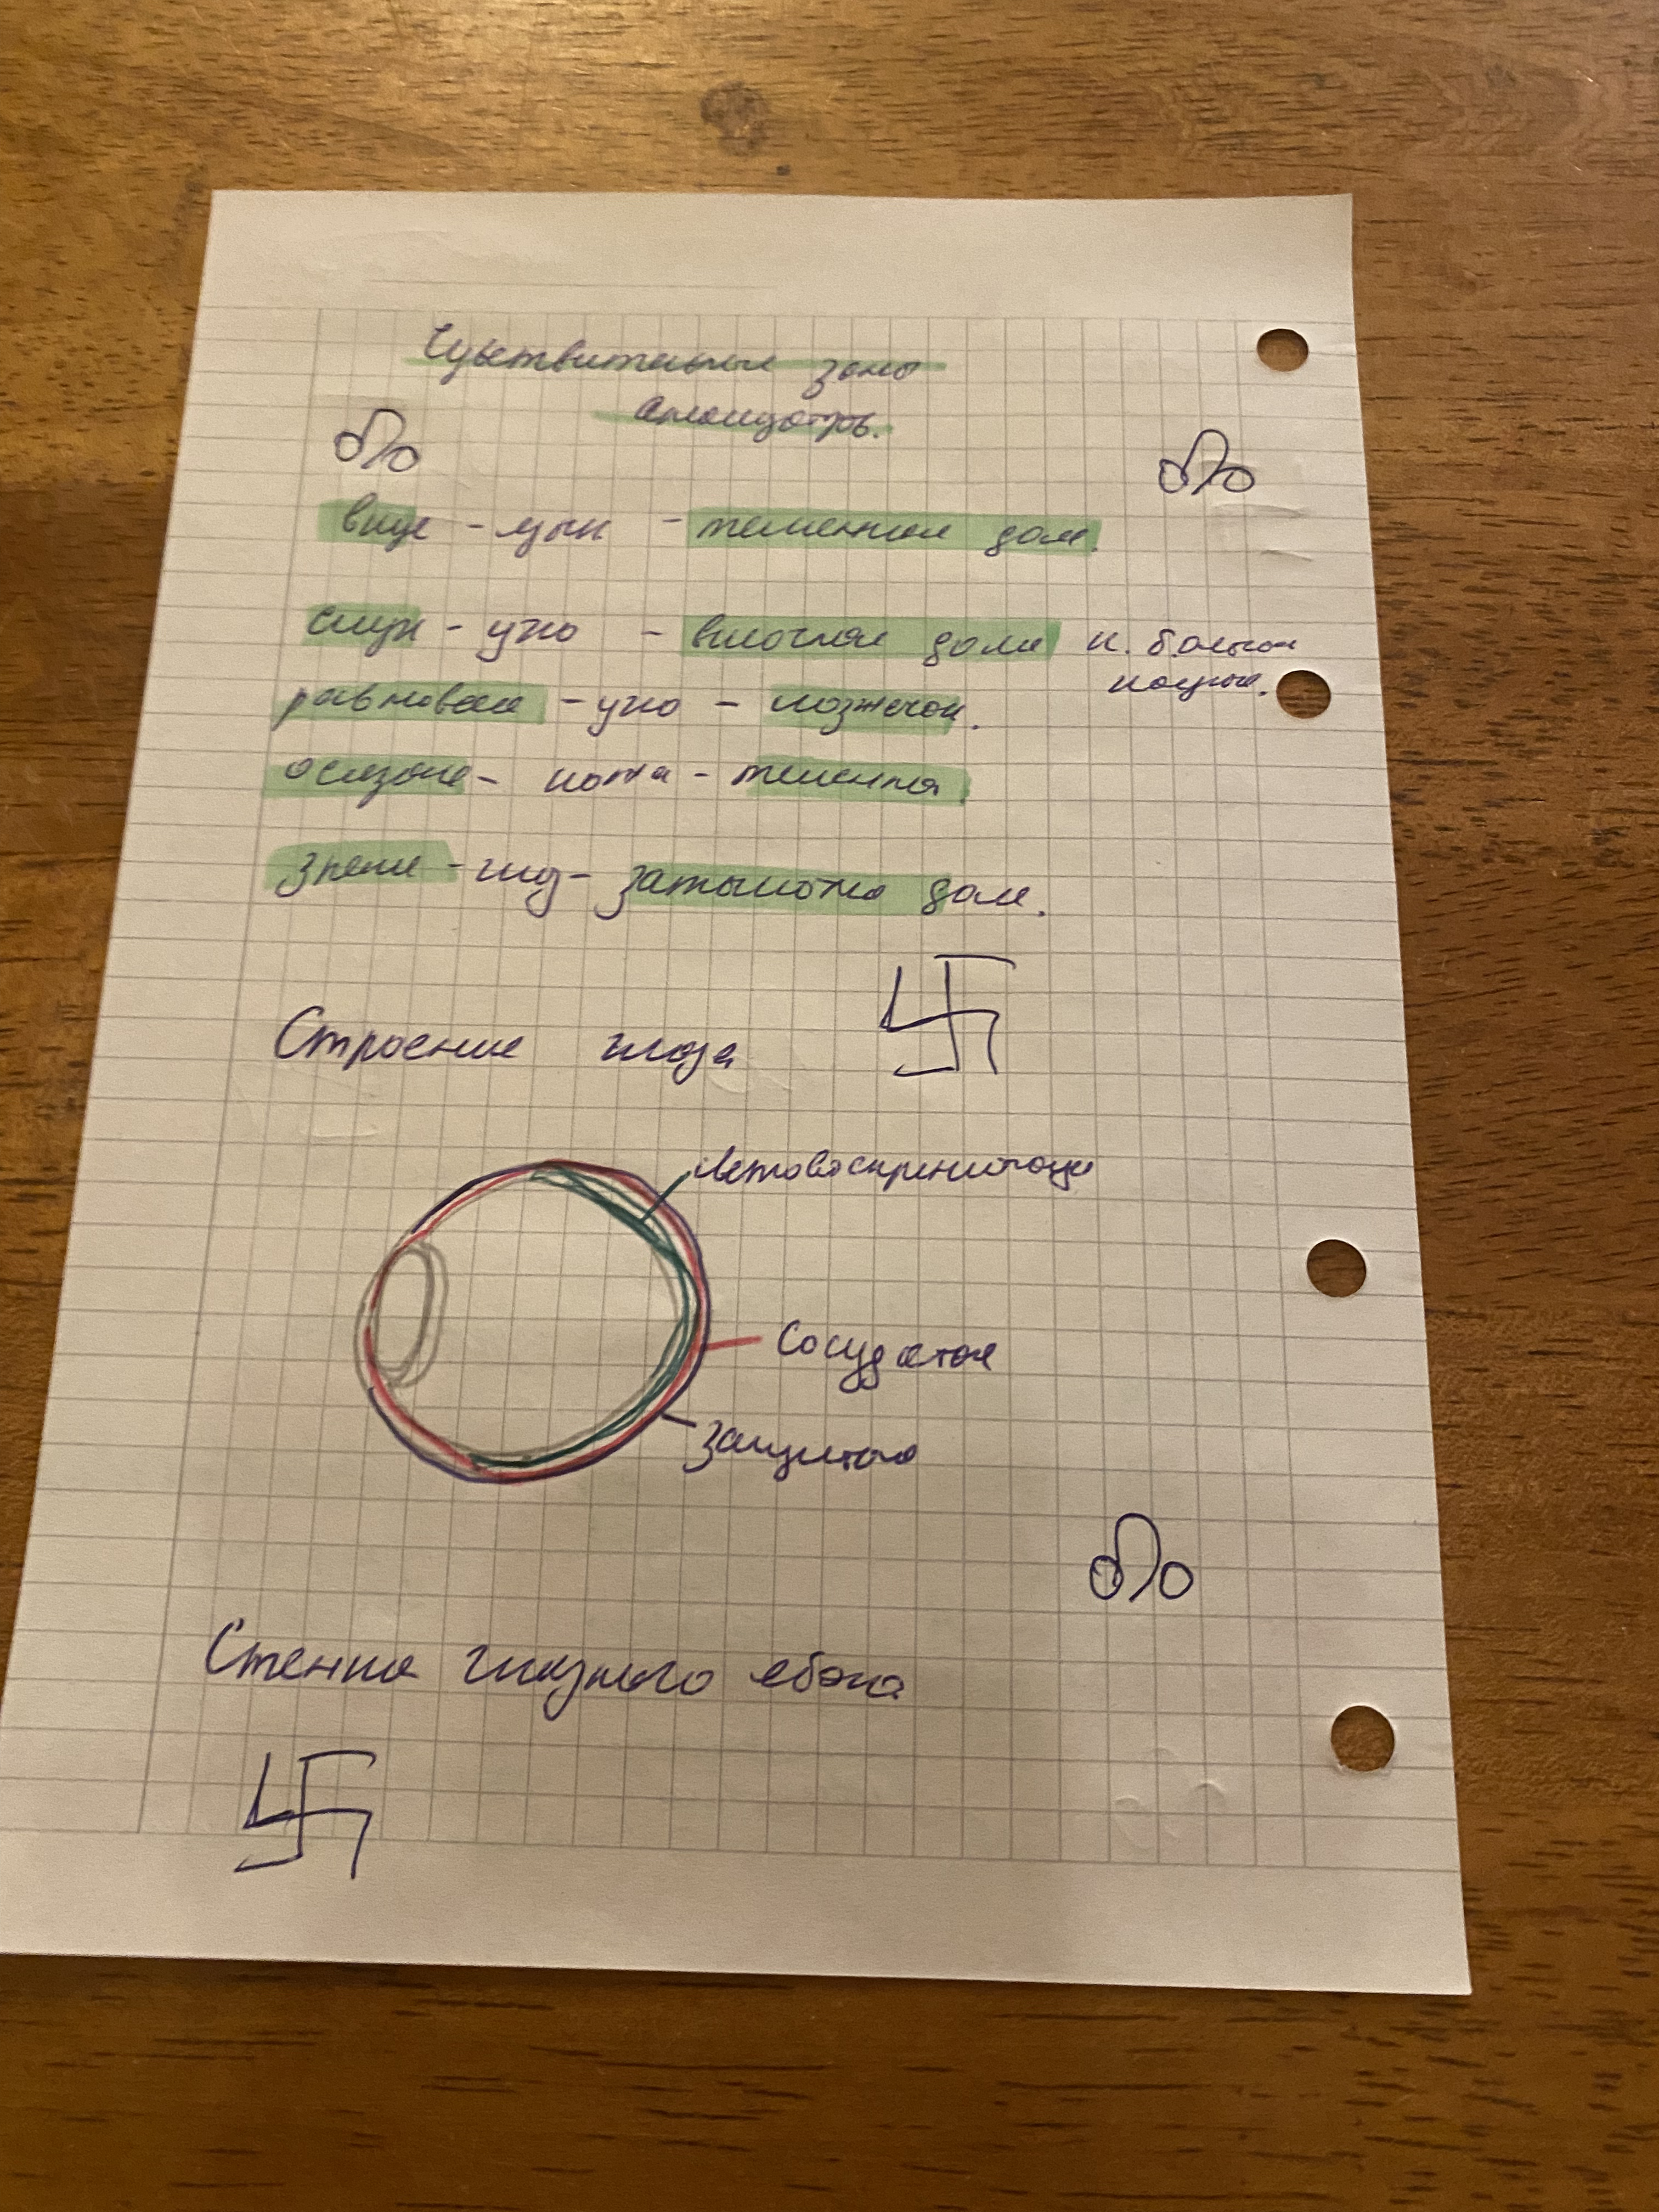 Чувствительные зоны
анализатор.
вкус - язык - теменная доля.
слух - ухо - височная доля к. больших
полуш.
равновесие - ухо - мозжечок.
осязание - кожа - теменная
зрение - глаз - затылочная доля.
Строение глаза
Световоспринимающая
Сосудистая
защитная
Стенка глазного яблока